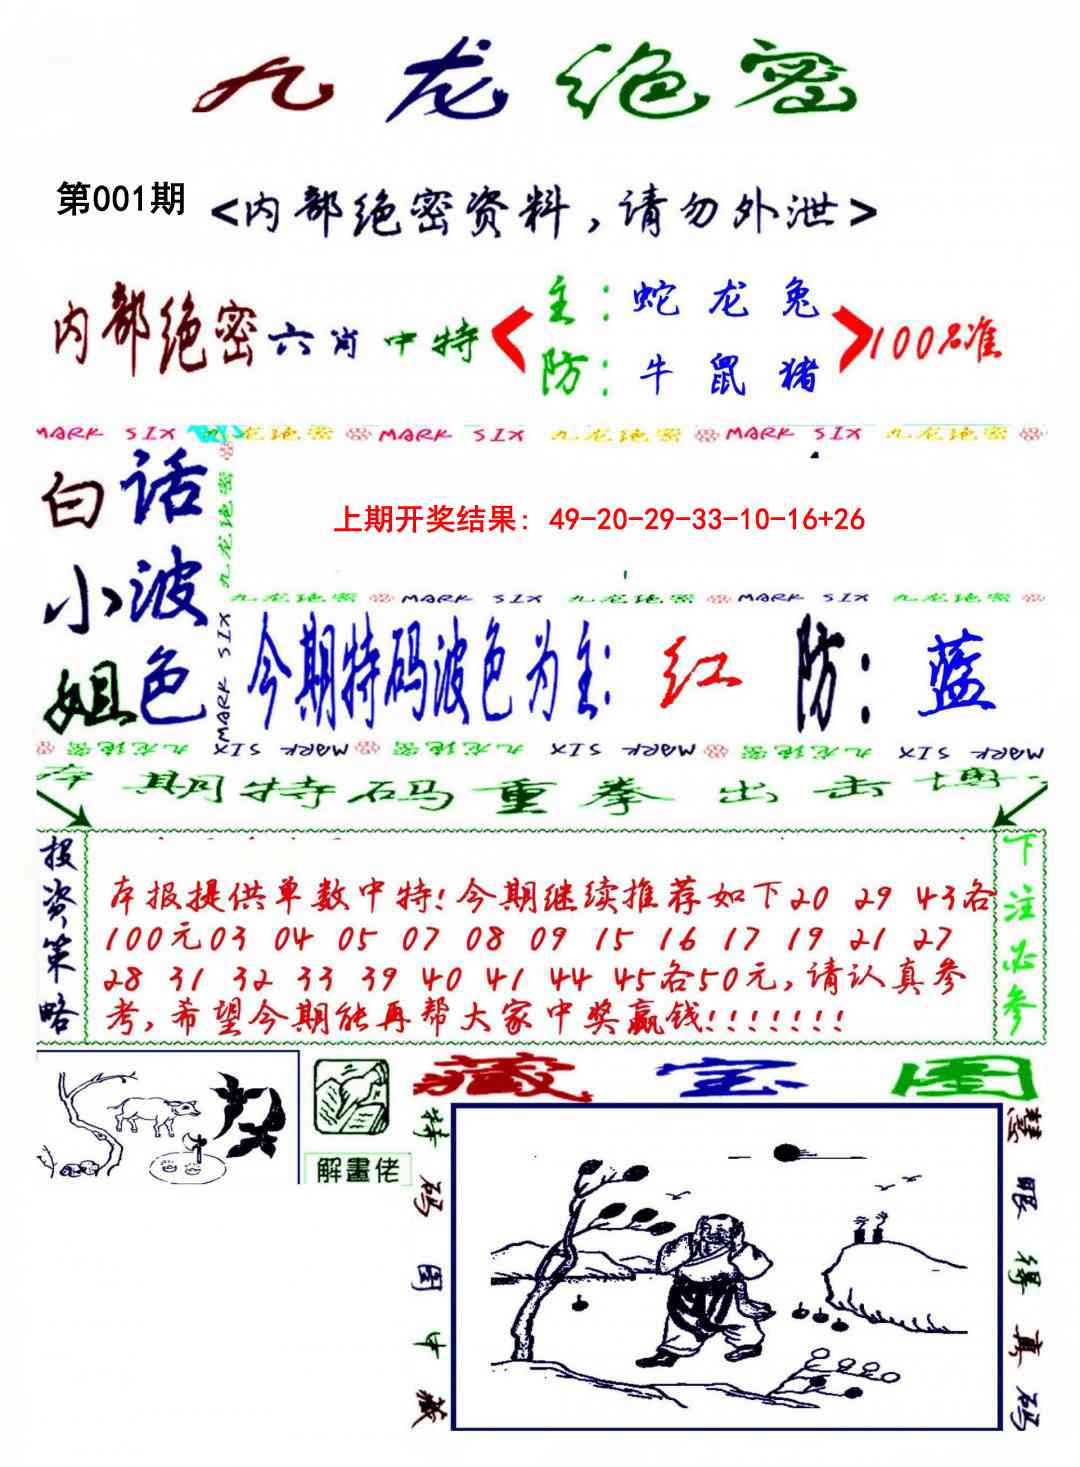 九龙绝密
第001期 <内部绝密资料,请勿外泄>
内部绝密六肖中特
主:蛇 龙 兔
防:牛 鼠 猪
100%准
MARK SIX 九龙绝密 MARK SIX 九龙绝密 MARK SIX 九龙绝密
九龙绝密 MARK SIX
白话小波姐色
上期开奖结果: 49-20-29-33-10-16+26
九龙绝密 MARK SIX 九龙绝密 MARK SIX 九龙绝密
今期特码波色为主: 红 防: 蓝
九龙绝密 MARK SIX 九龙绝密 MARK SIX 九龙绝密 MARK SIX
本期特码重拳出击博
投资策略
本报提供单数中特!今期继续推荐如下20 29 43各
100元03 04 05 07 08 09 15 16 17 19 21 27
28 31 32 33 39 40 41 44 45各50元,请认真参
考,希望今期能再帮大家中奖赢钱!!!!!!!
下注必参
解畫佬
藏宝图
特码图中藏
慧眼得真码